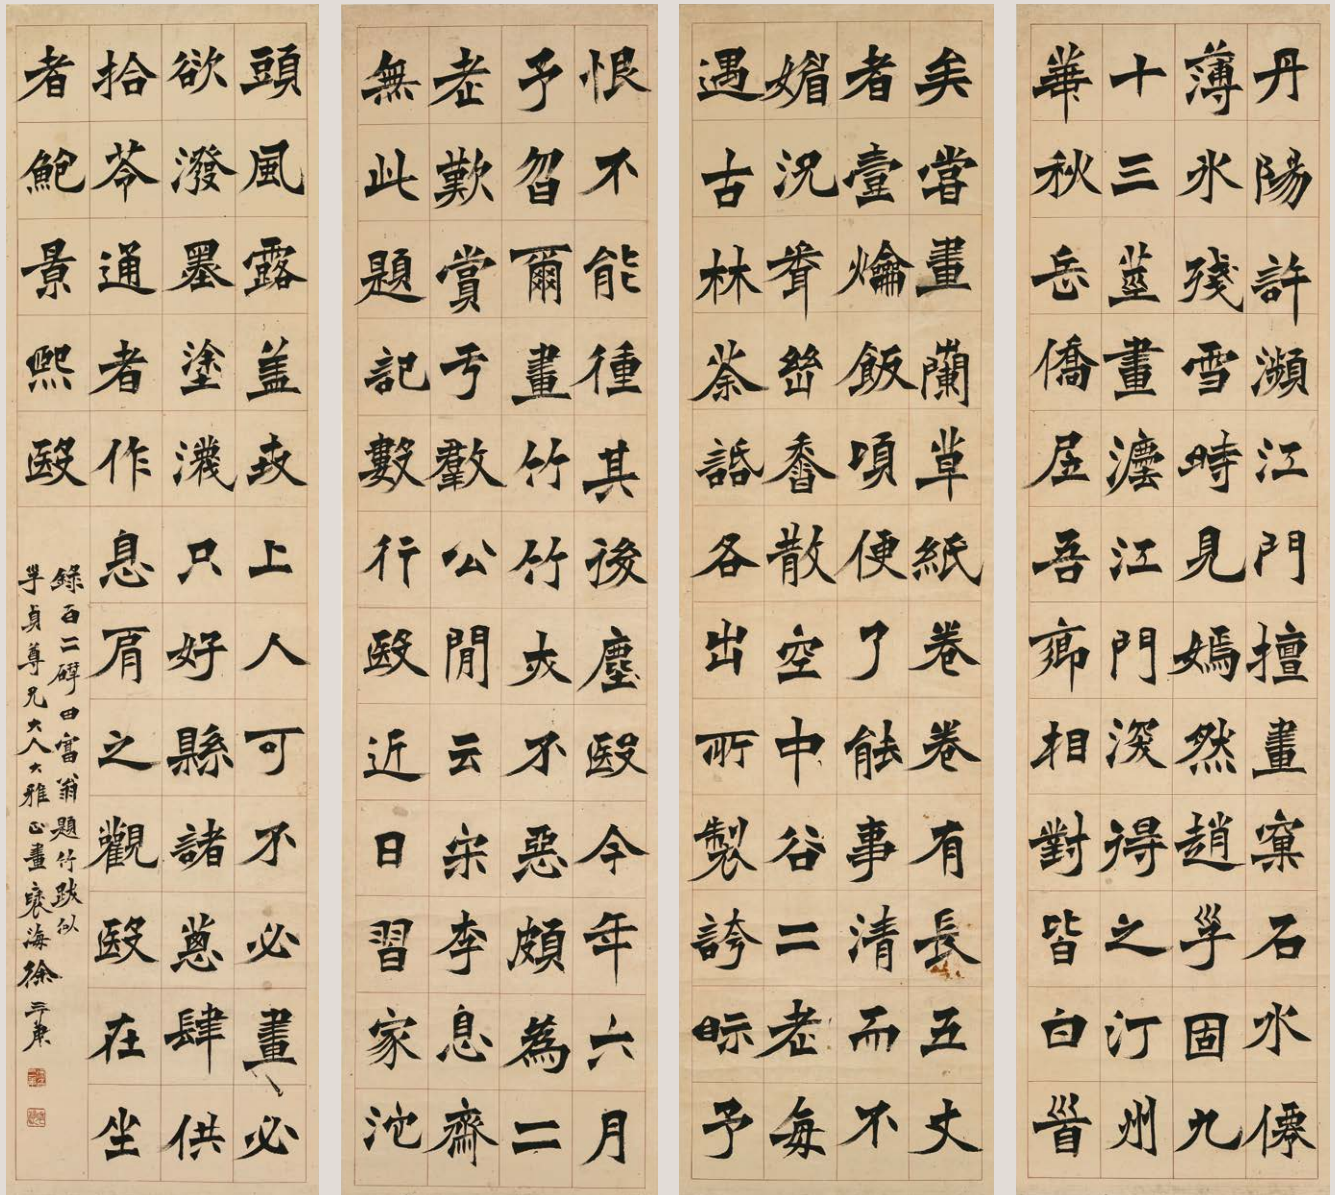 丹陽許瀕江門擅畫窠石水僊
薄氷殘雪時見嫣然趙子固九
十三莖畫瀍江門深得之汀州
華秋岳僑居吾鄉相對皆白首
矣嘗畫蘭草紙卷卷有長五丈
者臺爚飯頃便了能事清而不
媚況聞幽香散空中谷二老每
遇古林荼話各出所製誇眎予
恨不能種其後塵殹今年六月
予曶爾畫竹竹亦不惡頗為二
老歎賞于羣公閒云宋李息齋
無此題記數行殹近日習家池
頭風露盖上人可不必畫必
欲潑墨塗只好縣諸蔥肆供
拾苓通者作息肩之觀殹在坐
者鮑景熙殹
錄百二硯田富翁題竹跋似
子貞尊兄大人大雅正畫襄海徐三庚